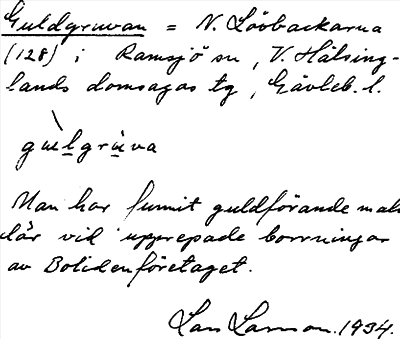 Guldgruvan = N. Lööbackarna
(128) i Ramsjö sn, V. Hälsing-
lands domsagas tg, Gävleb. l.
gu̇lgrùva
Man har funnit guldförande mal-
där vid upprepade borrningar
av Bolidenföretaget.
Lars Larsson. 1934.